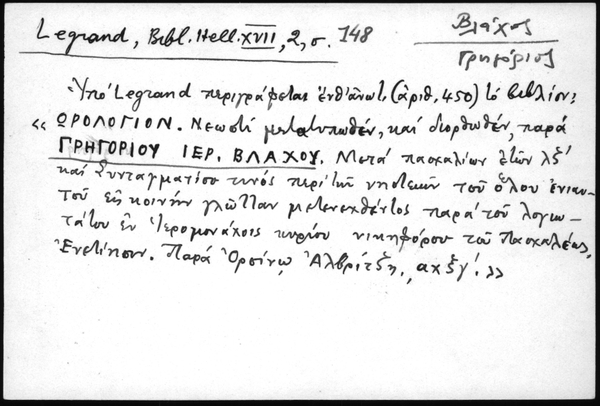 Legrand, Bibl. Hell. XVII, 2, σ. 148
Βλάχος
Γρηγόριος
Ὑπό Legrand περιγράφεται ἐνθ' ἀνωτ. (ἀριθ. 450) τό βιβλίον:
«ΩΡΟΛΟΓΙΟΝ. Νεωστί μετατυπωθέν, καί διορθωθέν, παρά
ΓΡΗΓΟΡΙΟΥ ΙΕΡ. ΒΛΑΧΟΥ. Μετά πασχαλίων ἐτῶν λξ'
καί Συνταγματίου τινός περί τῶν νηστειῶν τοῦ ὅλου ἐνιαυ-
τοῦ εἰς κοινήν γλῶτταν μετενεχθέντος παρά τοῦ λογιω-
τάτου ἐν Ἱερομονάχοις κυρίου νικηφόρου τοῦ Πασχαλέως,
Ἐνετίησιν. Παρά Ὀρσίνῳ Ἀλβρίτζῃ, αχξγ'.»